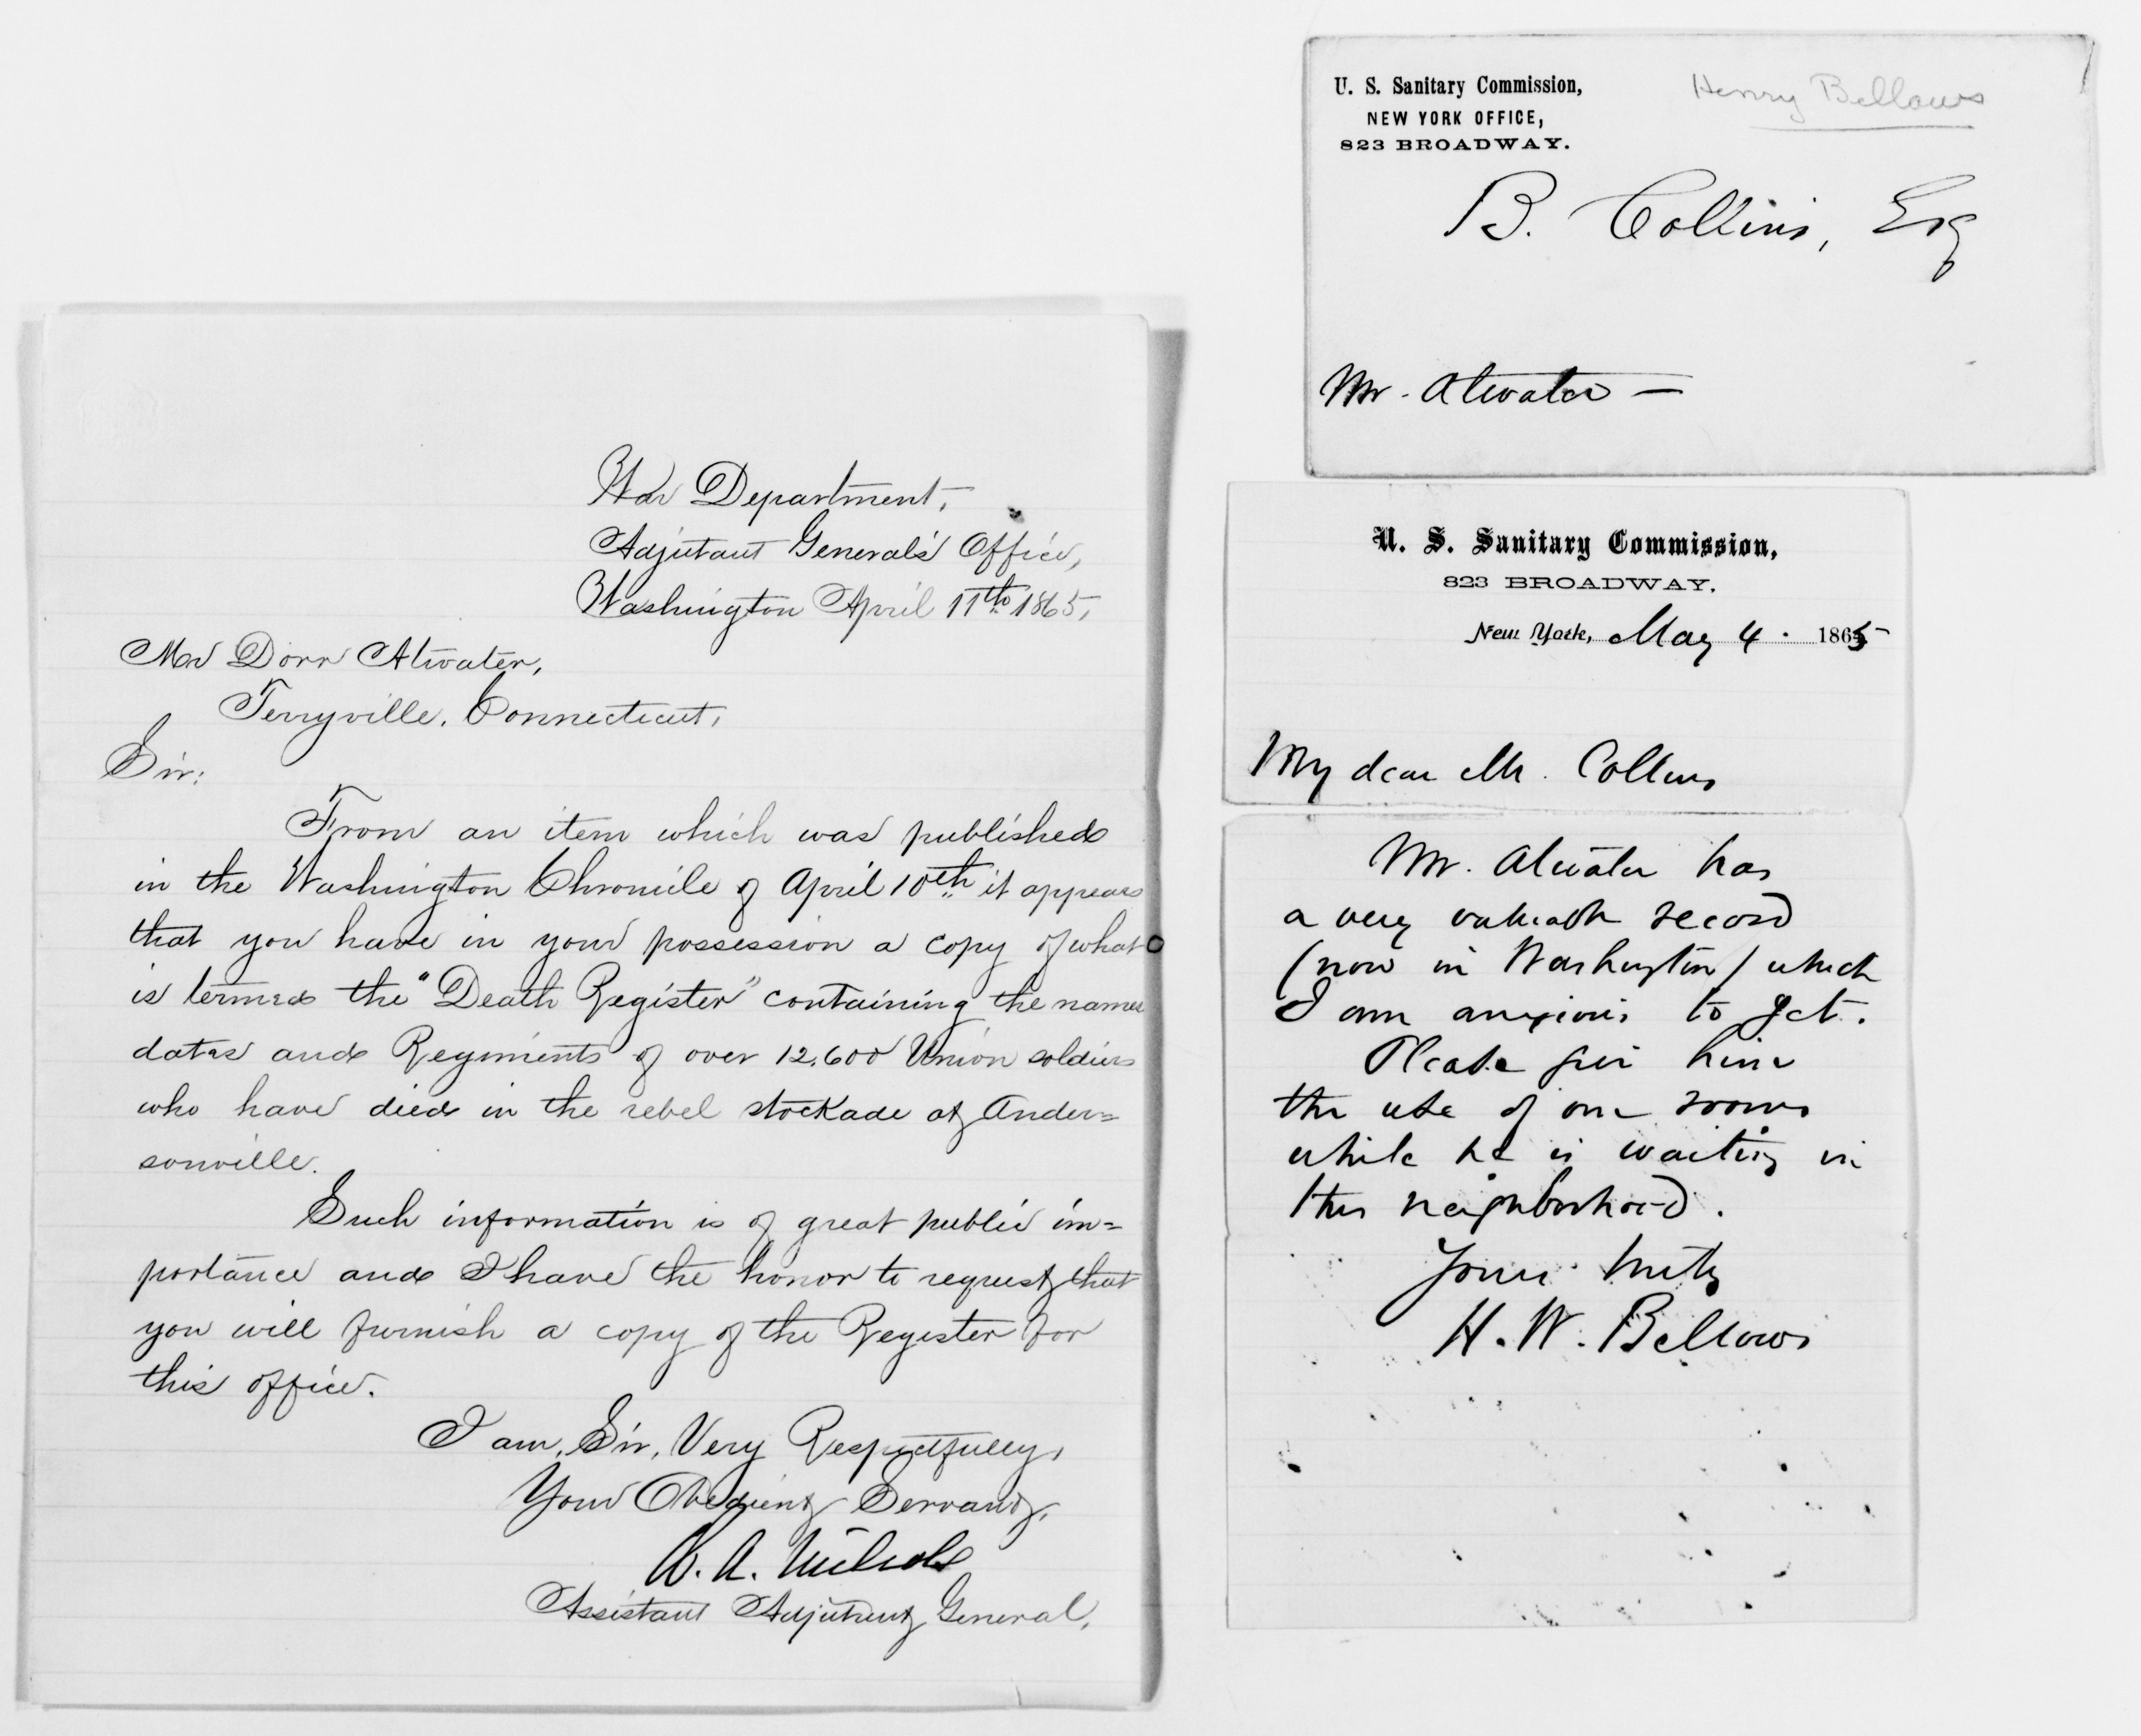 War Department,
Adjutant General's Office,
Washington April 11th 1865,
Mr Dorr Atwater,
Terryville, Connecticut,
Sir:
From an item which was published
in the Washington Chronicle of April 10th it appears
that you have in your possession a copy of what
is termed the "Death Register" containing the names
dates and Regiments of over 12,600 Union soldiers
who have died in the rebel stockade at Ander=
sonville.
Such information is of great public im=
portance and I have the honor to request that
you will furnish a copy of the Register for
this office.
I am, Sir, Very Respectfully,
Your Obedient Servant,
W. A. Nichols
Assistant Adjutant General.
U. S. Sanitary Commission,
NEW YORK OFFICE,
823 BROADWAY.
Henry Bellows
B. Collins, Esq
Mr. Atwater —
U. S. Sanitary Commission,
823 BROADWAY.
New York, May 4. 1865
My dear Mr. Collins
Mr. Atwater has
a very valuable record
(now in Washington) which
I am anxious to get.
Please give him
the use of our rooms
while he is waiting in
this neighborhood.
Yours truly
H. W. Bellows